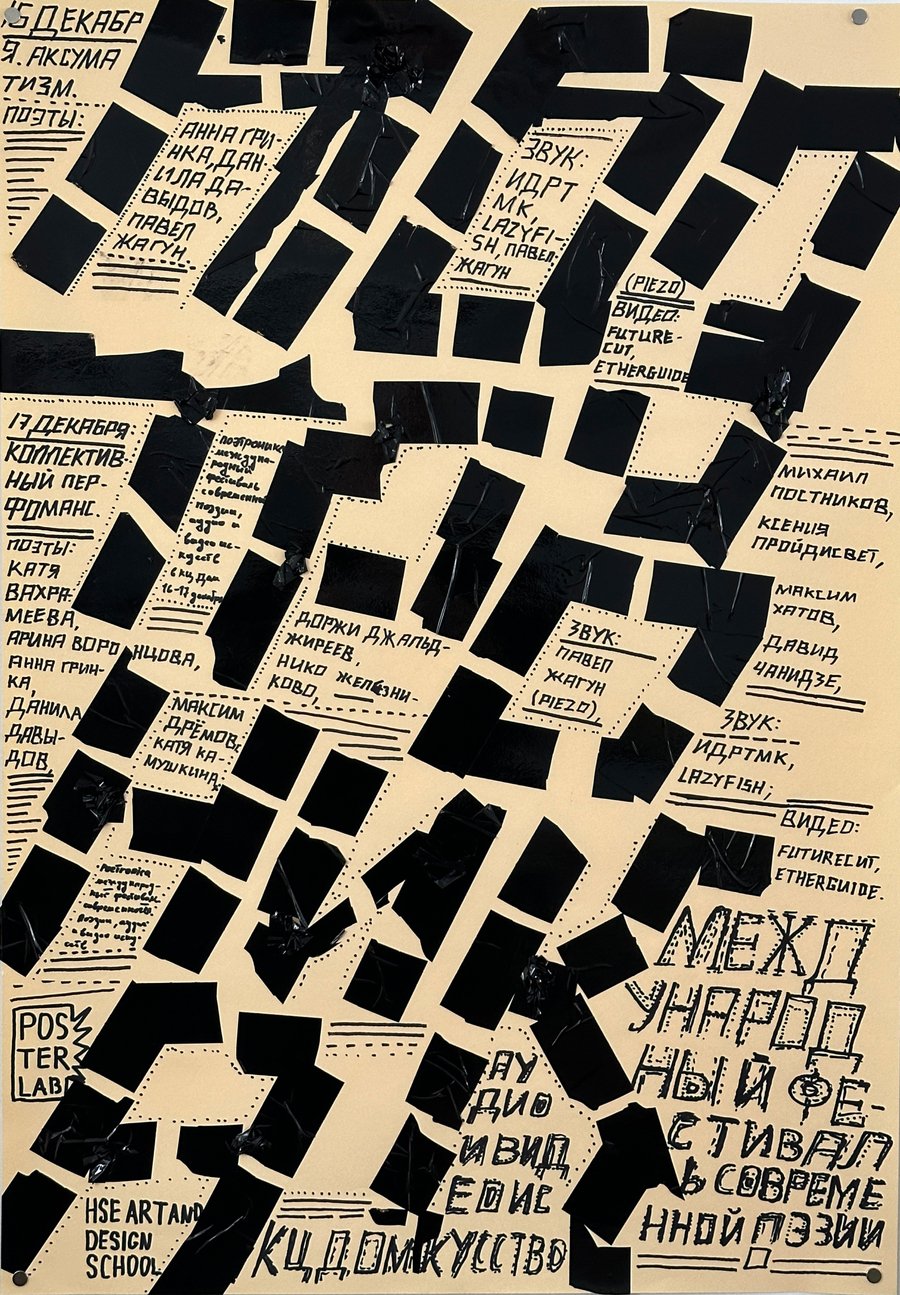 16 ДЕКАБР
Я. АКСУМА
ТИЗМ.
ПОЭТЫ:
АННА ГРИ-
НКА, ДАН-
ИЛА ДА-
ВЫДОВ,
ПАВЕЛ
ЖАГУН.
ЗВУК:
ИДРТ
МК,
LAZYFI-
SH, ПАВЕЛ
ЖАГУН
(PIEZO)
ВИДЕО:
FUTURE-
CUT,
ETHERGUIDE
17 ДЕКАБРЯ:
КОЛЛЕКТИВ-
НЫЙ ПЕР-
ФОМАНС.
ПОЭТЫ:
КАТЯ
ВАХРА-
МЕЕВА,
АРИНА ВОРОНЦОВА,
АННА ГРИН-
КА,
ДАНИЛА
ДАВЫ-
ДОВ,
поэтроника
междуна-
родный
фестиваль
современной
поэзии,
аудио и
видео ис-
кусств
в КЦ Дом
16-17 декабря
ДОРЖИ ДЖАЛЬД-
ЖИРЕЕВ,
НИКО ЖЕЛЕЗНИ-
КОВО,
МАКСИМ
ДРЁМОВ,
КАТЯ КА-
МУШКИНА,
МИХАИЛ
ПОСТНИКОВ,
КСЕНИЯ
ПРОЙДИСВЕТ,
МАКСИМ
ХАТОВ,
ДАВИД
ЧАНИДЗЕ,
ЗВУК:
ПАВЕЛ
ЖАГУН
(PIEZO)
ЗВУК:
ИДРТМК,
LAZYFISH;
ВИДЕО:
FUTURECUT,
ETHERGUIDE.
Poetronica
междунаро-
ный фестиваль
современной
поэзии, аудио
и видео иску
сств
POS
TER
LAB
HSE ART AND
DESIGN
SCHOOL
МЕЖД
УНАРОД
НЫЙ ФЕ-
СТИВАЛ
Ь СОВРЕМЕ
ННОЙ ПЭЗИИ
АУ
ДИО
И ВИД
ЕО ИС
КУССТВО
КЦ ДОМ